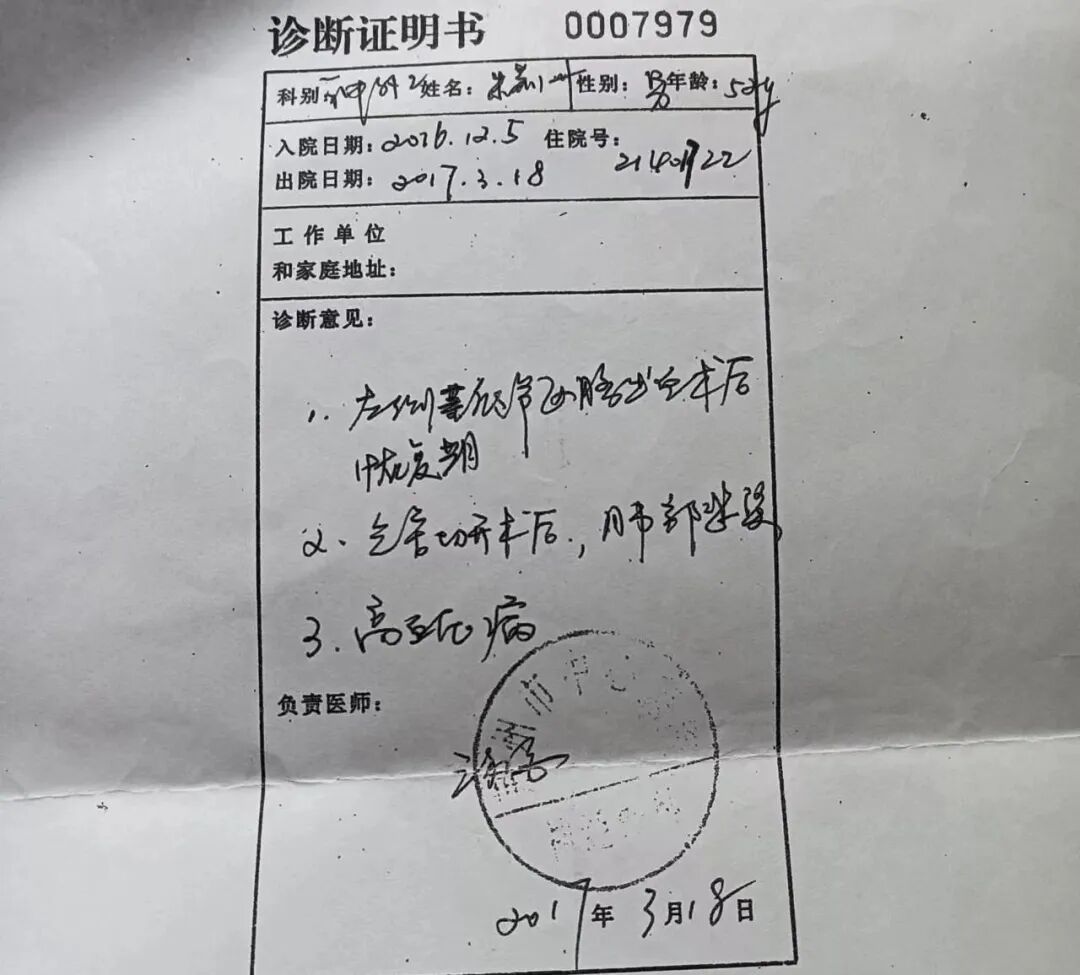 诊断证明书 0007979
科别: 姓名: 朱 性别: 男 年龄: 52y
入院日期: 2016.12.5 住院号:
出院日期: 2017.3.18 21401722
工作单位
和家庭地址:
诊断意见:
1. 左侧基底节区脑出血术后
恢复期
2、气管切开术后, 肺部感染
3. 高血压病
负责医师:
州市中心
2017年3月18日